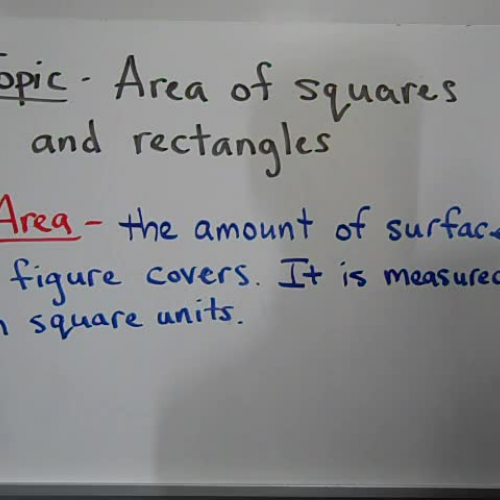 Topic - Area of squares
and rectangles
Area - the amount of surface
figure covers. It is measured
in square units.